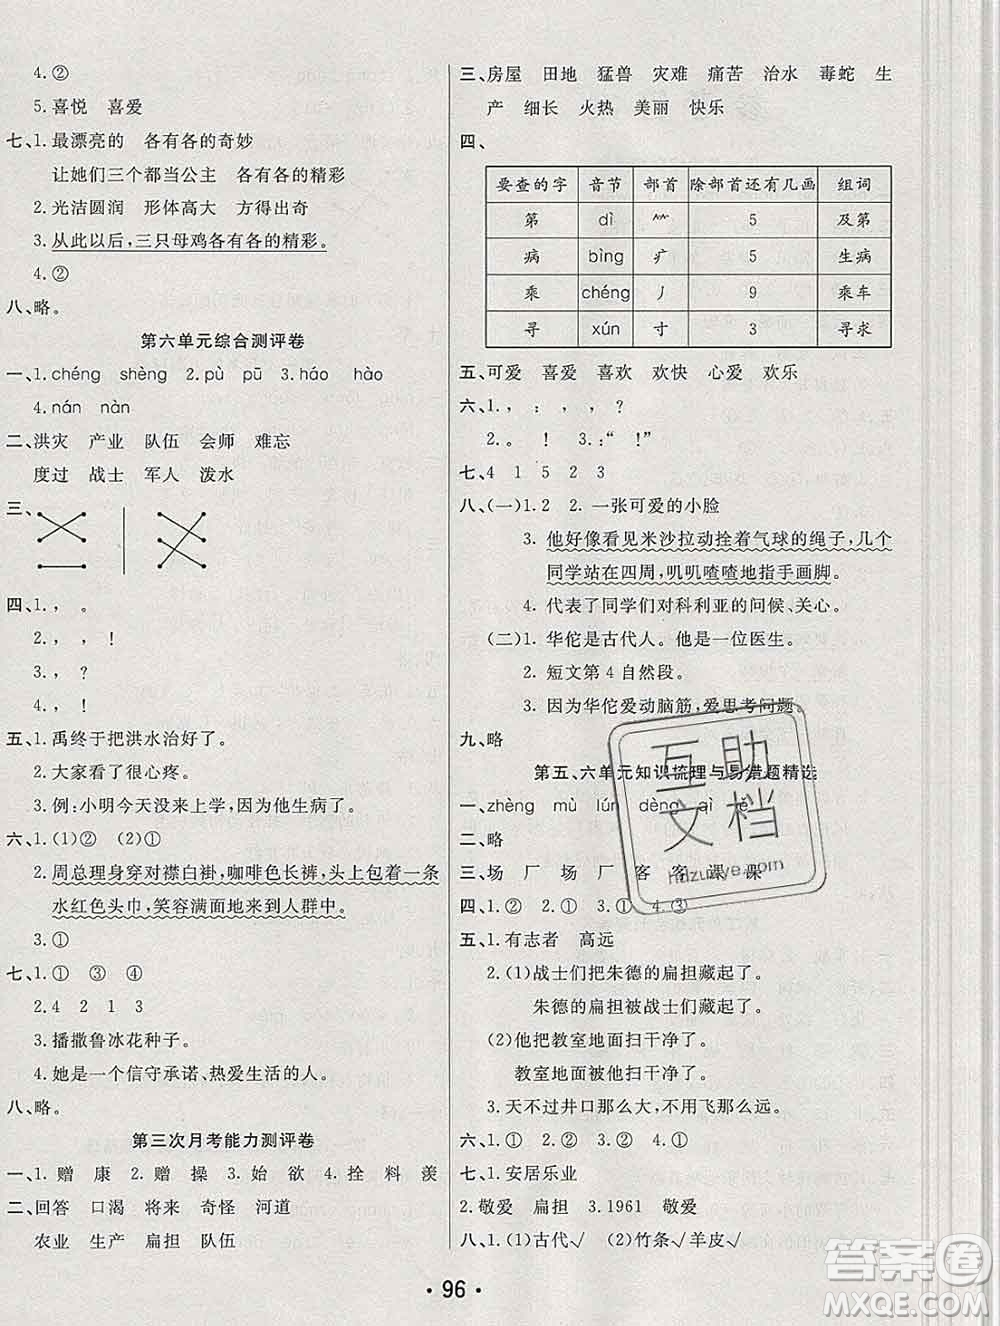 4.②
5.喜悦 喜爱
七、1.最漂亮的 各有各的奇妙
让她们三个都当公主 各有各的精彩
2.光洁圆润 形体高大 方得出奇
3.从此以后,三只母鸡各有各的精彩。
4.②
八、略。
第六单元综合测评卷
一、1.chéng shèng 2.pù pū 3.háo hào
4.nán nàn
二、洪灾 产业 队伍 会师 难忘
度过 战士 军人 泼水
三、
四、1.， 。
2.， ， ！
3.， ？
4.， ！
五、1.禹终于把洪水治好了。
2.大家看了很心疼。
3.例:小明今天没来上学,因为他生病了。
六、1.(1)② (2)①
2.周总理身穿对襟白褂,咖啡色长裤,头上包着一条
水红色头巾,笑容满面地来到人群中。
3.①
七、1.① ③ ④
2.4 2 1 3
3.播撒鲁冰花种子。
4.她是一个信守承诺、热爱生活的人。
八、略。
第三次月考能力测评卷
一、1.赠 康 2.赠 操 3.始 欲 4.拴 料 羡
二、回答 口渴 将来 奇怪 河道
农业 生产 扁担 队伍
三、房屋 田地 猛兽 灾难 痛苦 治水 毒蛇 生
产 细长 火热 美丽 快乐
四、
要查的字 音节 部首 除部首还有几画 组词
第 dì 5 及第
病 bìng 疒 5 生病
乘 chéng 丿 9 乘车
寻 xún 寸 3 寻求
五、可爱 喜爱 喜欢 欢快 心爱 欢乐
六、1.， ： ， ， ？
2.。 ！ 3.：“ ！”
七、4 1 5 2 3
八、(一)1.2 2.一张可爱的小脸
3.他好像看见米沙拉动拴着气球的绳子,几个
同学站在四周,叽叽喳喳地指手画脚。
4.代表了同学们对科利亚的问候、关心。
(二)1.华佗是古代人。他是一位医生。
2.短文第4自然段。
3.因为华佗爱动脑筋,爱思考问题。
九、略
第五、六单元知识梳理与易错题精选
一、zhèng mù lún dèng qì
二、略
三、场 厂 场 厂 客 客 课 课
四、1.② 2.① 3.① 4.③
五、1.有志者 高远
2.(1)战士们把朱德的扁担藏起了。
朱德的扁担被战士们藏起了。
(2)他把教室地面扫干净了。
教室地面被他扫干净了。
3.天不过井口那么大,不用飞那么远。
六、① ① ② ②
七、1.安居乐业
2.敬爱 扁担 3.1961 敬爱
八、1.(1)古代√ (2)竹条√羊皮√
互助
文档
·96·
答案圈
MXQE.COM